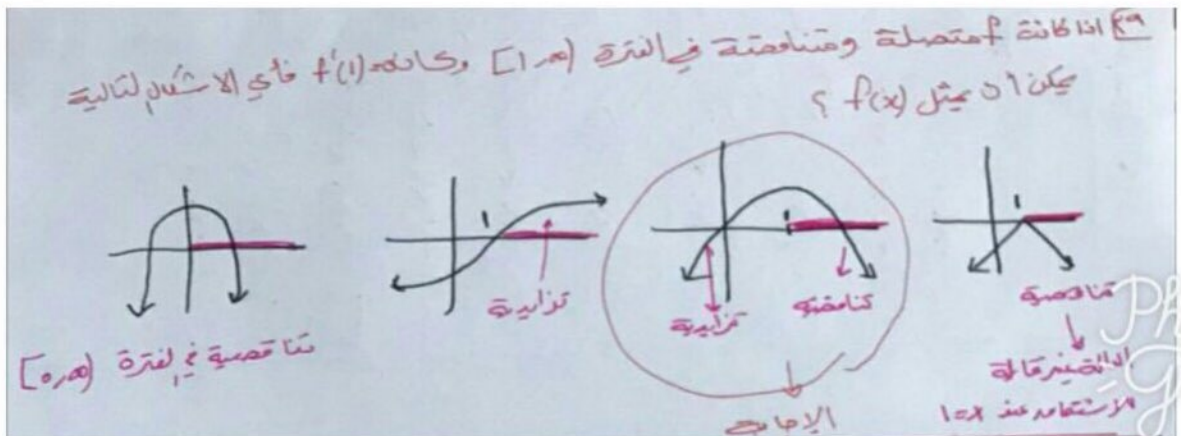 ٣٩ اذا كانت f متصلة ومتناقصة في الفترة [1,∞) وكانت f'(1)=0 فأي الاشكال التالية
يمكن ان يمثل f(x) ؟
1
تناقصية
الدالة غير قابلة
للاشتقاق عند x=1
1
تناقصية
تزايدية
الاجابة
1
تزايدية
تناقصية في الفترة [0,∞)